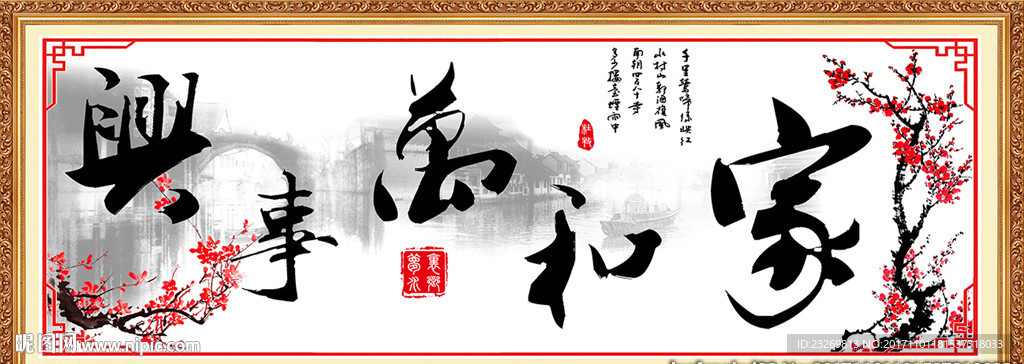 家和萬事興
千里鶯啼綠映紅
水村山郭酒旗風
南朝四百八十寺
多少樓臺煙雨中
昵图网
www.nipic.com
ID:23269813 NO:20171101181537818033